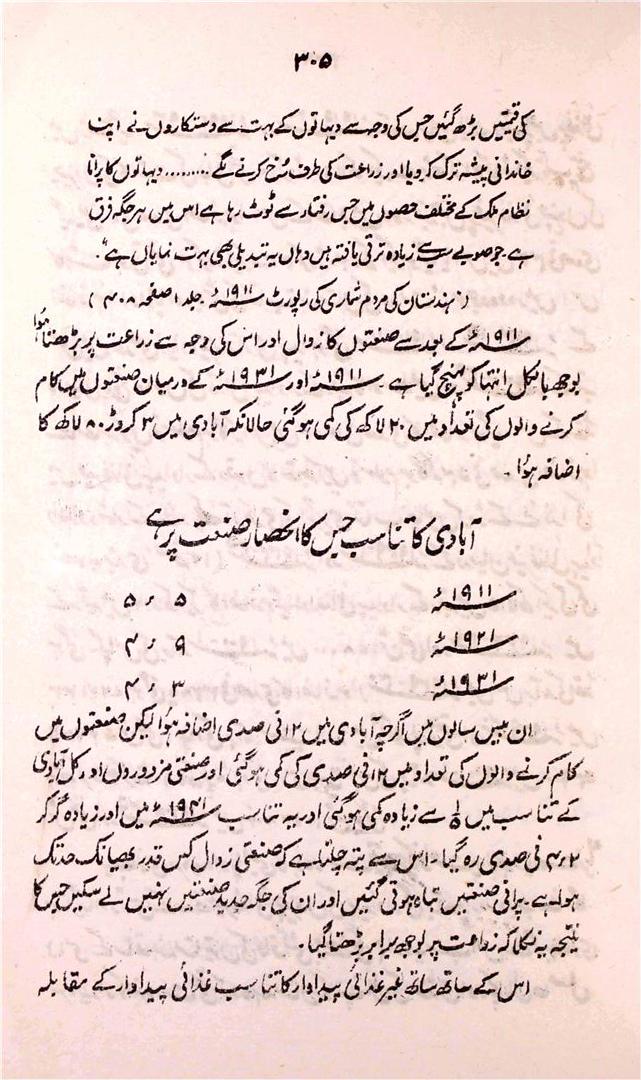 ۳۰۵
کی قیمتیں بڑھ گئیں جس کی وجہ سے دیہاتوں کے بہت سے دستکاروں نے اپنا
خاندانی پیشہ ترک کر دیا اور زراعت کی طرف رُخ کرنے لگے ......... دیہاتوں کا پرانا
نظام ملک کے مختلف حصوں میں جس رفتار سے ٹوٹ رہا ہے اس میں ہر جگہ فرق
ہے۔ جو صوبے سب سے زیادہ ترقی یافتہ ہیں وہاں یہ تبدیلی بھی بہت نمایاں ہے“۔
(ہندستان کی مردم شماری کی رپورٹ ۱۹۱۱ء جلد ۱ صفحہ ۴۰۸)
۱۹۱۱ء کے بعد سے صنعتوں کا زوال اور اس کی وجہ سے زراعت پر بڑھتا ہُوا
بوجھ بالکل انتہا کو پہنچ گیا ہے۔ ۱۹۱۱ء اور ۱۹۳۱ء کے درمیان صنعتوں میں کام
کرنے والوں کی تعداد میں ۲۰ لاکھ کی کمی ہو گئی حالانکہ آبادی میں ۳ کروڑ ۸۰ لاکھ کا
اضافہ ہُوا۔
آبادی کا تناسب جس کا انحصار صنعت پر ہے
۱۹۱۱ء ۵٫۵
۱۹۲۱ء ۴٫۹
۱۹۳۱ء ۴٫۳
ان بیس سالوں میں اگرچہ آبادی میں ۱۲ فی صدی اضافہ ہُوا لیکن صنعتوں میں
کام کرنے والوں کی تعداد میں ۱۲ فی صدی کی کمی ہو گئی اور صنعتی مزدوروں اور کل آبادی
کے تناسب میں ⅕ سے زیادہ کمی ہو گئی اور یہ تناسب ۱۹۴۱ء میں اور زیادہ گر کر
۴٫۲ فی صدی رہ گیا۔ اس سے پتہ چلتا ہے کہ صنعتی زوال کس قدر بھیانک حد تک
ہوا ہے۔ پرانی صنعتیں تباہ ہوتی گئیں اور ان کی جگہ جدید صنعتیں نہیں لے سکیں جس کا
نتیجہ یہ نکلا کہ زراعت پر بوجھ برابر بڑھتا گیا۔
اس کے ساتھ ساتھ غیر غذائی پیداوار کا تناسب غذائی پیداوار کے مقابلہ